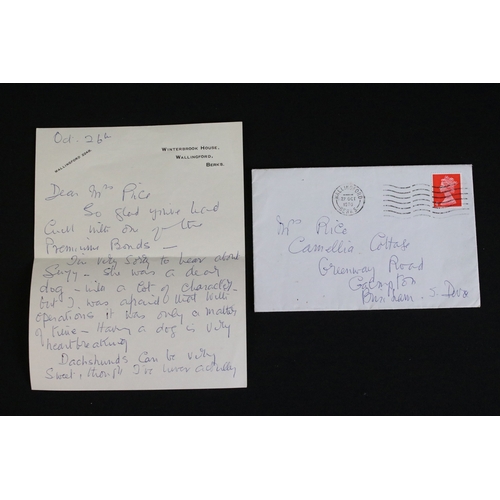 Oct. 26th
WALLINGFORD 2248.
WINTERBROOK HOUSE,
WALLINGFORD,
BERKS.
Dear Mrs Price
So glad you've had
luck with one of the
Premium Bonds —
I'm very sorry to hear about
— She was a dear
dog — with a lot of character —
but I was afraid that with
operations it was only a matter
of time — Having a dog is very
heartbreaking
Dachshunds can be very
Sweet, though I've never actually
WALLINGFORD
BERKS.
Mrs Price
Camellia Cottage
Greenway Road
Galmpton
Brixham, S. Devon